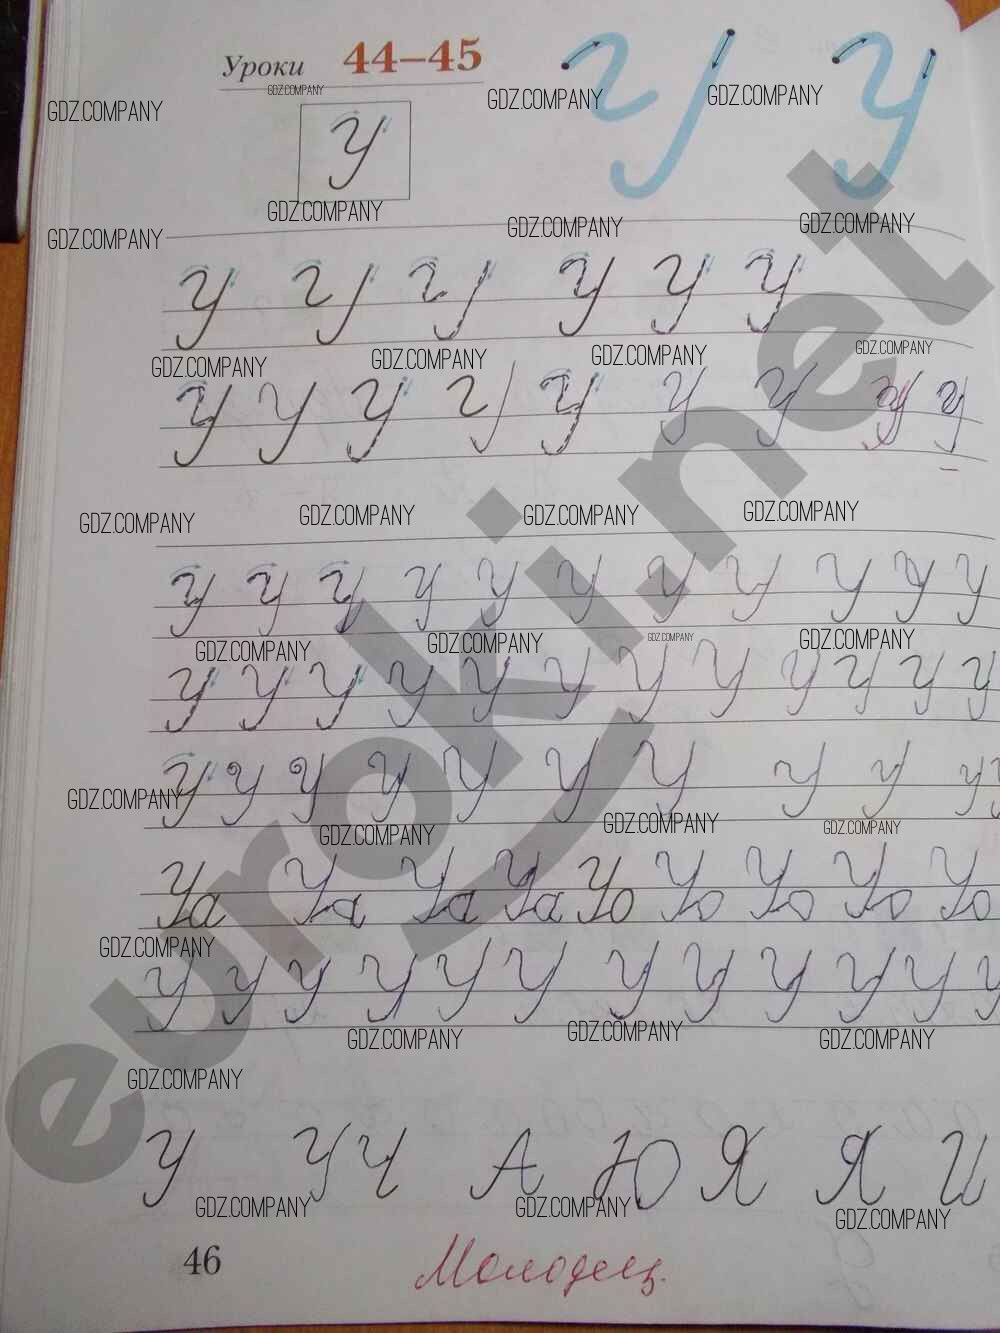 Уроки 44–45
GDZ.COMPANY
GDZ.COMPANY GDZ.COMPANY GDZ.COMPANY
У
GDZ.COMPANY GDZ.COMPANY GDZ.COMPANY
GDZ.COMPANY
У У У У У У
GDZ.COMPANY GDZ.COMPANY GDZ.COMPANY GDZ.COMPANY
У У У У У У У У У
GDZ.COMPANY GDZ.COMPANY GDZ.COMPANY GDZ.COMPANY
У У У У У У У У У У У
GDZ.COMPANY GDZ.COMPANY GDZ.COMPANY GDZ.COMPANY
У У У У У У У У У У У У
У У У У У У У У У У У
GDZ.COMPANY GDZ.COMPANY GDZ.COMPANY GDZ.COMPANY
Уа Уа Уа Уа Уо Уо Уо Уо Уо
GDZ.COMPANY
У У У У У У У У У У У У
GDZ.COMPANY GDZ.COMPANY GDZ.COMPANY
GDZ.COMPANY
У У Ч А Ю Я Я И
GDZ.COMPANY GDZ.COMPANY GDZ.COMPANY
46
Молодец.
euroki.net